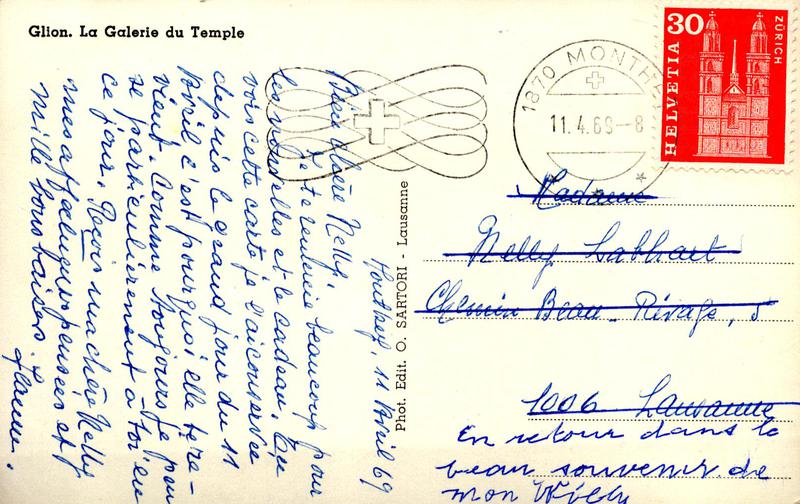 Glion. La Galerie du Temple
Monthey, 11 Avril 69
Bien chère Nelly,
Je te remercie beaucoup pour
tes nouvelles et le cadeau. Tu
vois cette carte je l'ai conservée
depuis le grand jour du 11
Avril c'est pourquoi elle te re-
vient. Comme toujours je pense
particulièrement à toi en
ce jour. Reçois ma chère Nelly
mes affectueuses pensées et
mille bons baisers.
Phot. Edit. O. SARTORI - Lausanne
1870 MONTHEY
11.4.69-8
30
HELVETIA
ZÜRICH
Madame
Nelly Labhart
Chemin Beau-Rivage, 5
1006 Lausanne
En retour dans le
beau souvenir de
mon